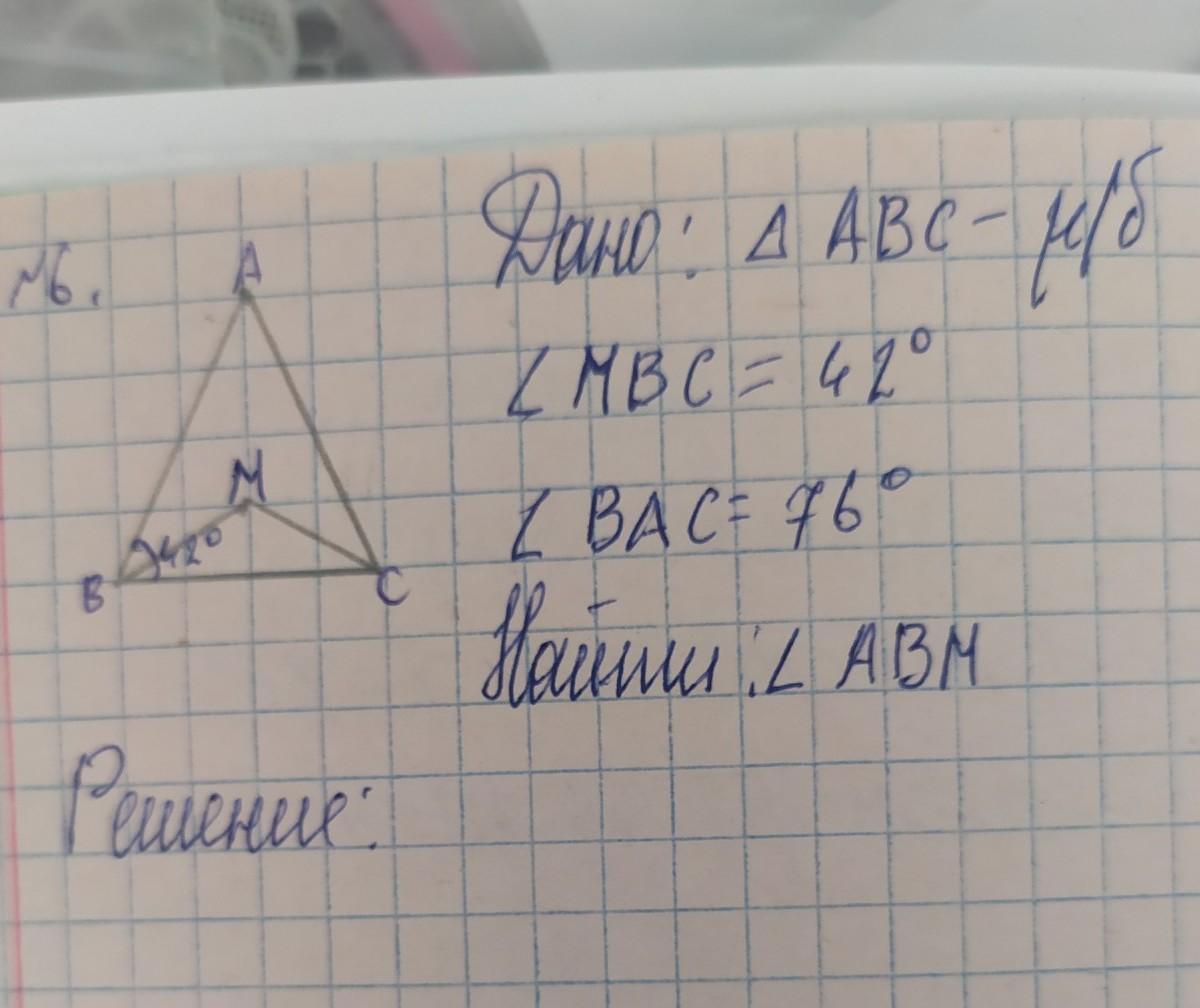 №6.
A
M
42°
B
C
Дано: Δ ABC – р/б
∠ MBC = 42°
∠ BAC = 76°
Найти: ∠ ABM
Решение: